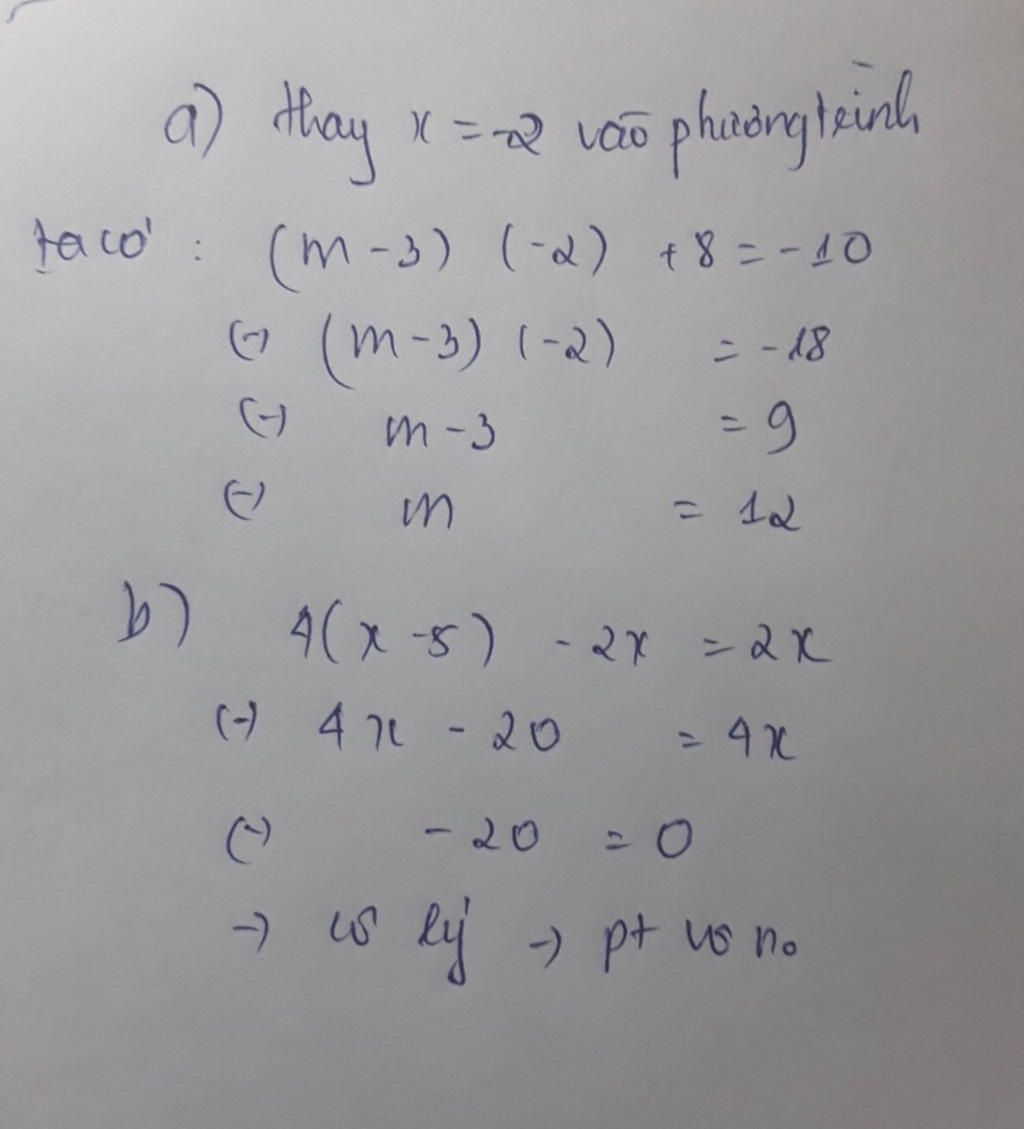 a) thay x = -2 vào phương trình
ta có : (m - 3) (-2) + 8 = -10
(-) (m - 3) (-2) = -18
(-) m - 3 = 9
(-) m = 12
b) 4(x - 5) - 2x = 2x
(-) 4x - 20 = 4x
(-) -20 = 0
→ vô lý → pt vô no